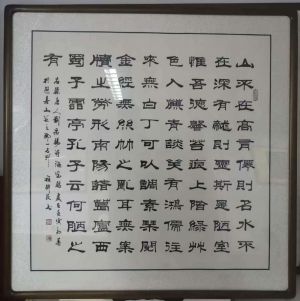 山不在高有仙則名水不
在深有龍則靈斯是陋室
惟吾德馨苔痕上階綠艸
色入簾青談笑有鴻儒往
來無白丁可以調素琴閱
金經無絲竹之亂耳無案
牘之勞形南陽諸葛廬西
蜀子雲亭孔子云何陋之
有